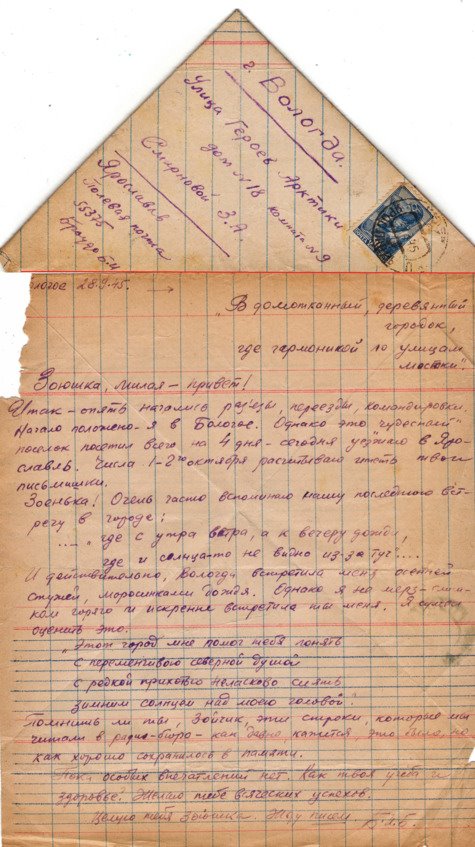 г. Вологда.
Улица Героев Арктики
дом №18 комната №9
Смирновой З.А.
Ярославль
Полевая почта
55375
Брауде Б.
ологое 28.9.45.
„В домотканный, деревянный
городок,
где гармоникой по улицам
мостки“.
Зоюшка, милая – привет!
Итак – опять начались разъезды, переезды, командировки.
Начало положено – я в Бологое. Однако это „чудесный“
поселок посетил всего на 4 дня – сегодня уезжаю в Яро-
славль. Числа 1-2го октября расчитываю читать твои
письмишки.
Зоенька! Очень часто вспоминаю нашу последнюю вст-
речу в городе:
... „где с утра ветра, а к вечеру дожди,
где и солнца-то не видно из-за туч“...
И действительно, Вологда встретила меня осенней
стужей, моросинками дождя. Однако я не мерз – слиш-
ком горячо и искренне встретила ты меня. Я сумел
оценить это.
„Этот город мне помог тебя понять
с переменчивою северной душой
с редкой прихотью неласково сиять
зимним солнцем над моею головой“.
Помнишь ли ты, Зойчик, эти строки, которые мы
читали в радио-бюро – как давно кажется это было, но
как хорошо сохранилось в памяти.
Пока особых впечатлений нет. Как твоя учеба и
здоровье? Желаю тебе всяческих успехов.
Целую тебя Зоюшка. Жду писем